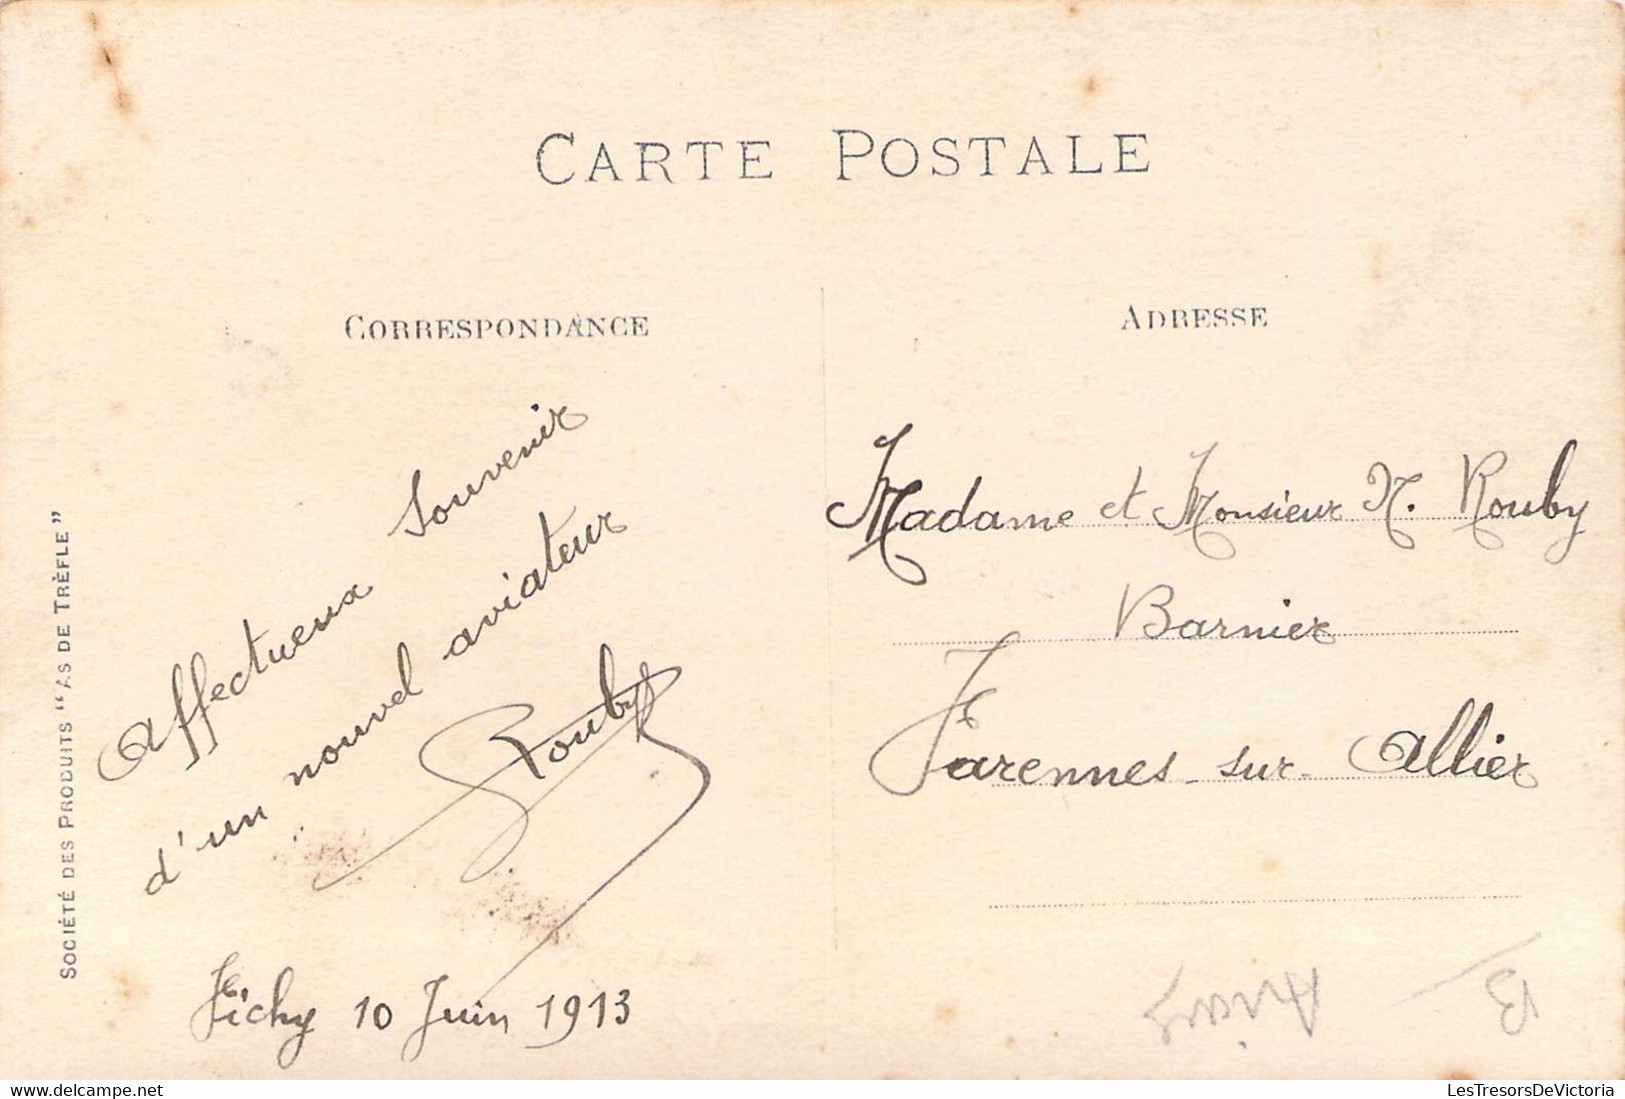 CARTE POSTALE
CORRESPONDANCE
Affectueux Souvenir
d'un nouvel aviateur
Rouby
Vichy 10 Juin 1913
SOCIÉTÉ DES PRODUITS "AS DE TRÈFLE"
ADRESSE
Madame et Monsieur N. Rouby
Barnier
Varennes-sur-Allier
LesTresorsDeVictoria